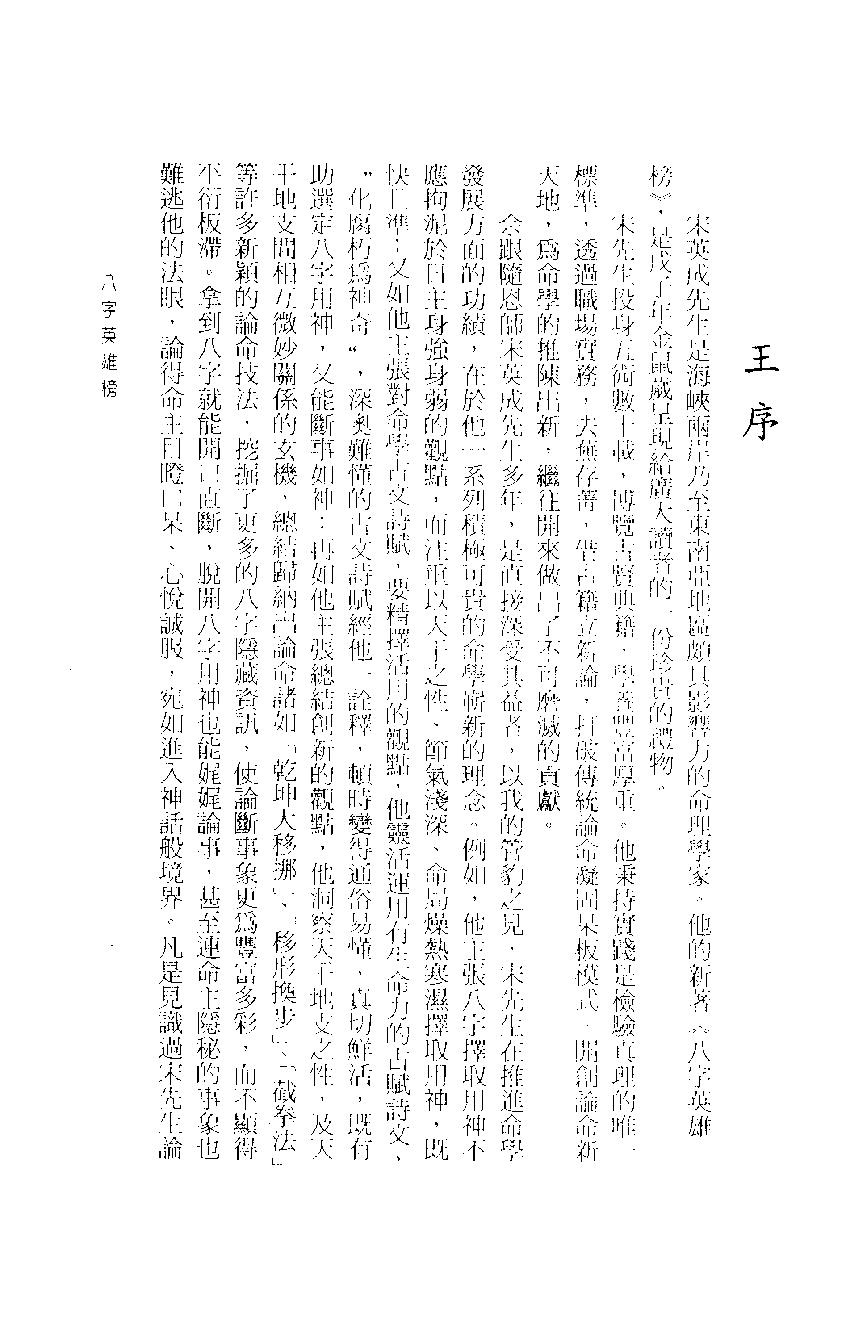 王序
宋英成先生是海峽兩岸乃至東南亞地區頗具影響力的命理學家。他的新著《八字英雄
榜》，是戊子年金鼠歲呈現給廣大讀者的一份珍貴的禮物。
宋先生投身五術數十載，博覽古賢典籍，學養豐富厚重。他秉持實踐是檢驗真理的唯一
標準，透過職場實務，去蕪存菁，借古籍立新論，打破傳統論命凝固呆板模式，開創論命新
天地，爲命學的推陳出新，繼往開來做出了不可磨滅的貢獻。
余跟隨恩師宋英成先生多年，是直接深受其益者，以我的管豹之見，宋先生在推進命學
發展方面的功績，在於他一系列積極可貴的命學嶄新的理念。例如，他主張八字擇取用神不
應拘泥於日主身強身弱的觀點，而注重以天干之性、節氣淺深、命局燥熱寒濕擇取用神，既
快且準；又如他主張對命學古文詩賦，要精擇活用的觀點，他靈活運用有生命力的古賦詩文、
“化腐朽爲神奇“，深奧難懂的古文詩賦經他一詮釋，頓時變得通俗易懂，真切鮮活，既有
助選定八字用神，又能斷事如神；再如他主張總結創新的觀點，他洞察天干地支之性，及天
干地支間相互微妙關係的玄機，總結歸納出論命諸如「乾坤大移挪」、「移形換步」、「截拳法」
等許多新穎的論命技法，挖掘了更多的八字隱藏資訊，使論斷事象更爲豐富多彩，而不顯得
平衍板滯。拿到八字就能開口直斷，脫開八字用神也能娓娓論事，甚至連命主隱秘的事象也
難逃他的法眼，論得命主目瞪口呆、心悅誠服，宛如進入神話般境界。凡是見識過宋先生論
八字英雄榜